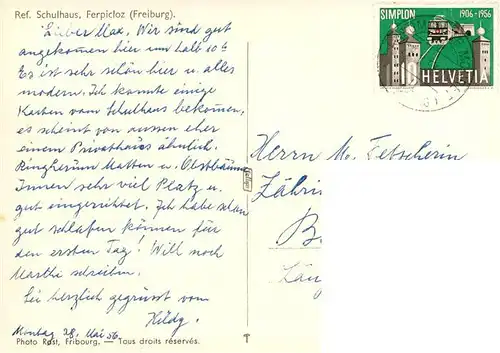 Ref. Schulhaus, Ferpicloz (Freiburg).
Lieber Max. Wir sind gut
angekommen hier um halb 10h
Es ist sehr schön hier u. alles
modern. Ich konnte einige
Karten vom Schulhaus bekommen,
es scheint von aussen eher
einem Privathaus ähnlich.
Ringherum Matten u. Obstbäume
Innen sehr viel Platz u.
gut eingerichtet. Ich habe schon
gut schlafen können für
den ersten Tag! Will noch
Marthi schreiben.
Sei herzlich gegrüsst vom
Hildy.
Montag 28. Mai 56
Photo Rast, Fribourg, — Tous droits réservés.
SIMPLON 1906-1956
10 HELVETIA
Herrn M. Tetscherin
Zähri
B
Län